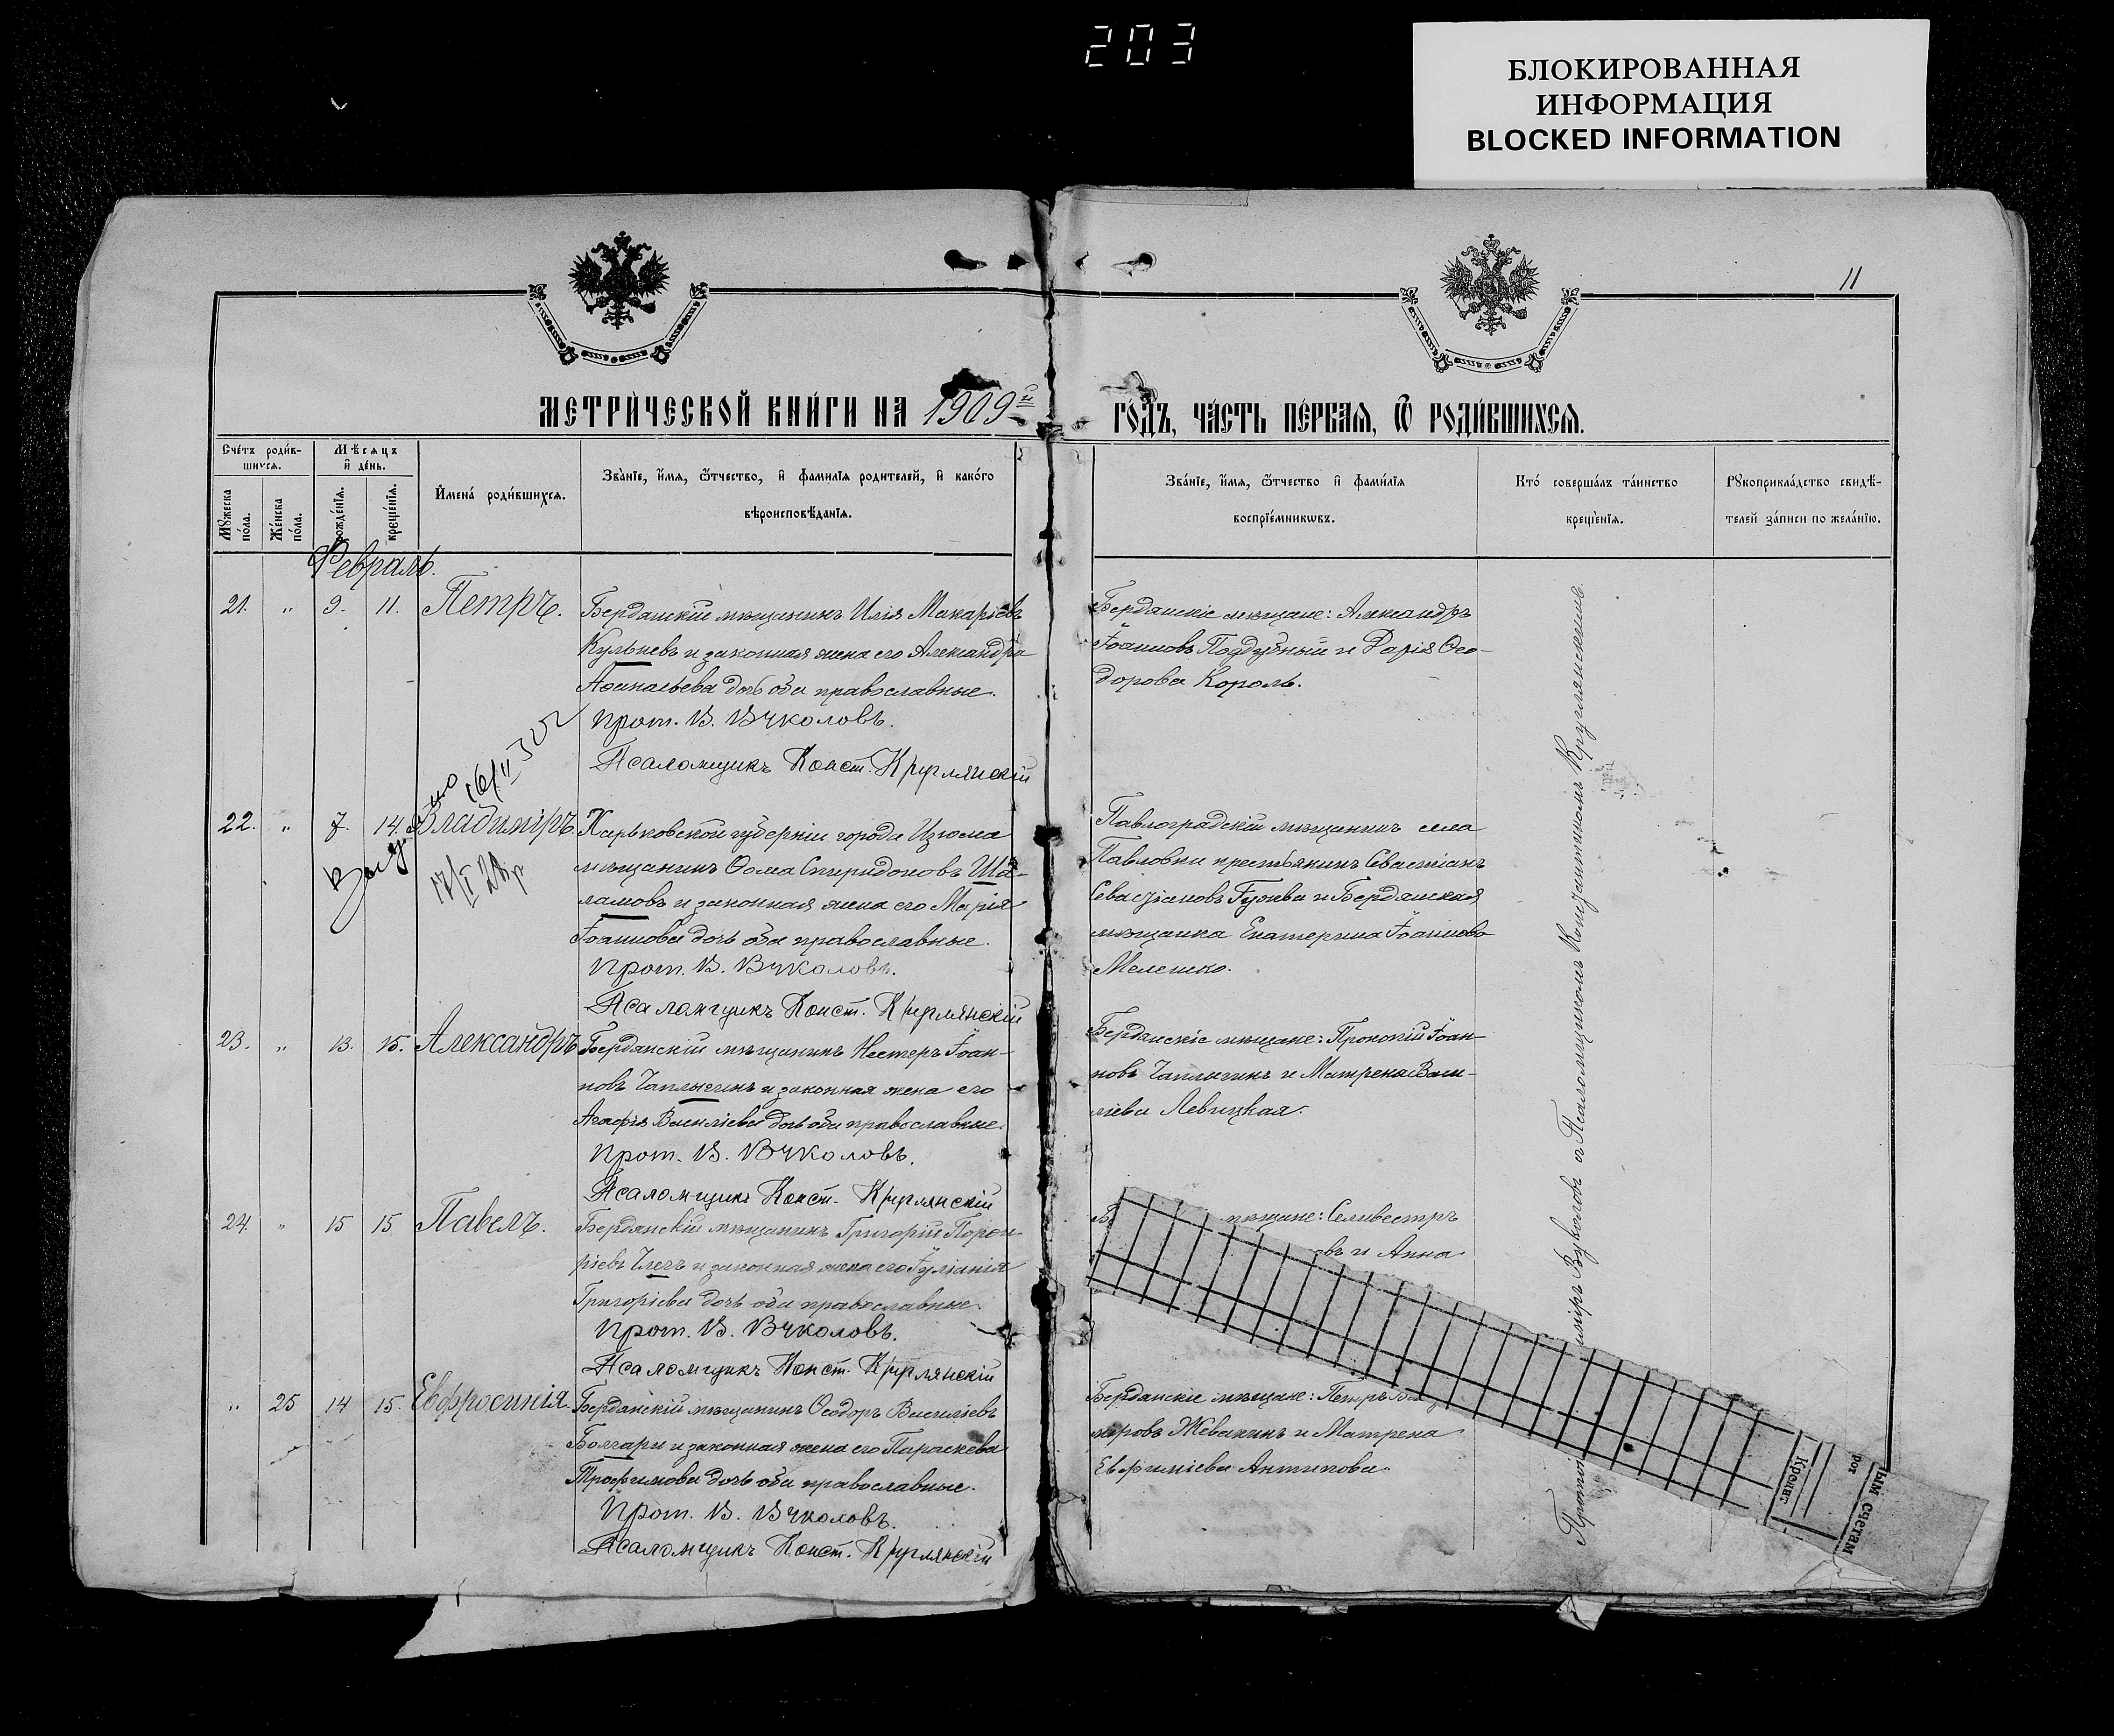 203
БЛОКИРОВАННАЯ
ИНФОРМАЦИЯ
BLOCKED INFORMATION
11
МЕТРИ́ЧЕСКОЙ КНИ́ГИ НА 1909й
ГО́ДЪ, ЧА́СТЬ ПЕ́РВАѦ, Ѿ РОДИ́ВШИХСѦ.
Сче́тъ роди́в-
шихсѧ.
Мѣ́сѧцъ
и҆ де́нь.
Мꙋ́жеска по́ла.
Же́нска по́ла.
рожде́нїѧ.
креще́нїѧ.
И҆мена̀ роди́вшихсѧ.
Зва́нїе, и҆́мѧ, ѻ҆́тчество, и҆ фами́лїѧ роди́телей, и҆ како́гѡ
вѣроисповѣ́данїѧ.
Зва́нїе, и҆́мѧ, ѻ҆́тчество и҆ фами́лїѧ
воспрїе́мникѡвъ.
Кто̀ соверша́лъ та́инство
креще́нїѧ.
Рꙋкоприкла́дство свидѣ́-
телей за́писи по жела́нїю.
Февраль.
21. " 9. 11. Петръ.
Бердянскій мѣщанинъ Илія Макаріевъ
Кульневъ и законная жена его Александра
Аѳанасьева дочь оба православные.
Прот. В. Вуколовъ.
Псаломщикъ Конст. Круглянскій
Бердянскіе мѣщане: Александръ
Іоанновъ Поддубный и Дарія Ѳео-
дорова Король.
22. " 7. 14. Владиміръ
16/II
17/I 28 г
Харьковской губерніи города Изюма
мѣщанинъ Ѳома Спиридоновъ Ша-
ламовъ и законная жена его Марія
Іоаннова дочь оба православные.
Прот. В. Вуколовъ.
Псаломщикъ Конст. Круглянскій
Павлоградскій мѣщанинъ села
Павловки крестьянинъ Севастіанъ
Севастіановъ и Бердянская
мѣщанка Екатерина Іоаннова
Мелешко.
23. " 13. 15. Александръ
Бердянскій мѣщанинъ Нестеръ Іоан-
новъ Чаплыгинъ и законная жена его
Агафія Василіева дочь оба православные.
Прот. В. Вуколовъ.
Псаломщикъ Конст. Круглянскій
Бердянскіе мѣщане: Прокопій Іоан-
новъ Чаплигинъ и Матрена Васи-
ліева Левицкая.
24. " 15 15 Павелъ.
Бердянскій мѣщанинъ Григорій
и законная жена его Іуліанія
Григоріева дочь оба православные.
Прот. В. Вуколовъ.
Псаломщикъ Конст. Круглянскій
мѣщане: Селивестръ
овъ и Анна
" 25 14 15. Евфросинія
Бердянскій мѣщанинъ Ѳеодоръ Василіевъ
Болгаръ и законная жена его Параскева
Трофимова дочь оба православные.
Прот. В. Вуколовъ.
Псаломщикъ Конст. Круглянскій
Бердянскіе мѣщане: Петръ
міровъ Жевакинъ и Матрена
Евфиміева Антипова.
Вуколовъ съ Псаломщикомъ Константиномъ Круглянскимъ
Кредит.
рот
ым счетам